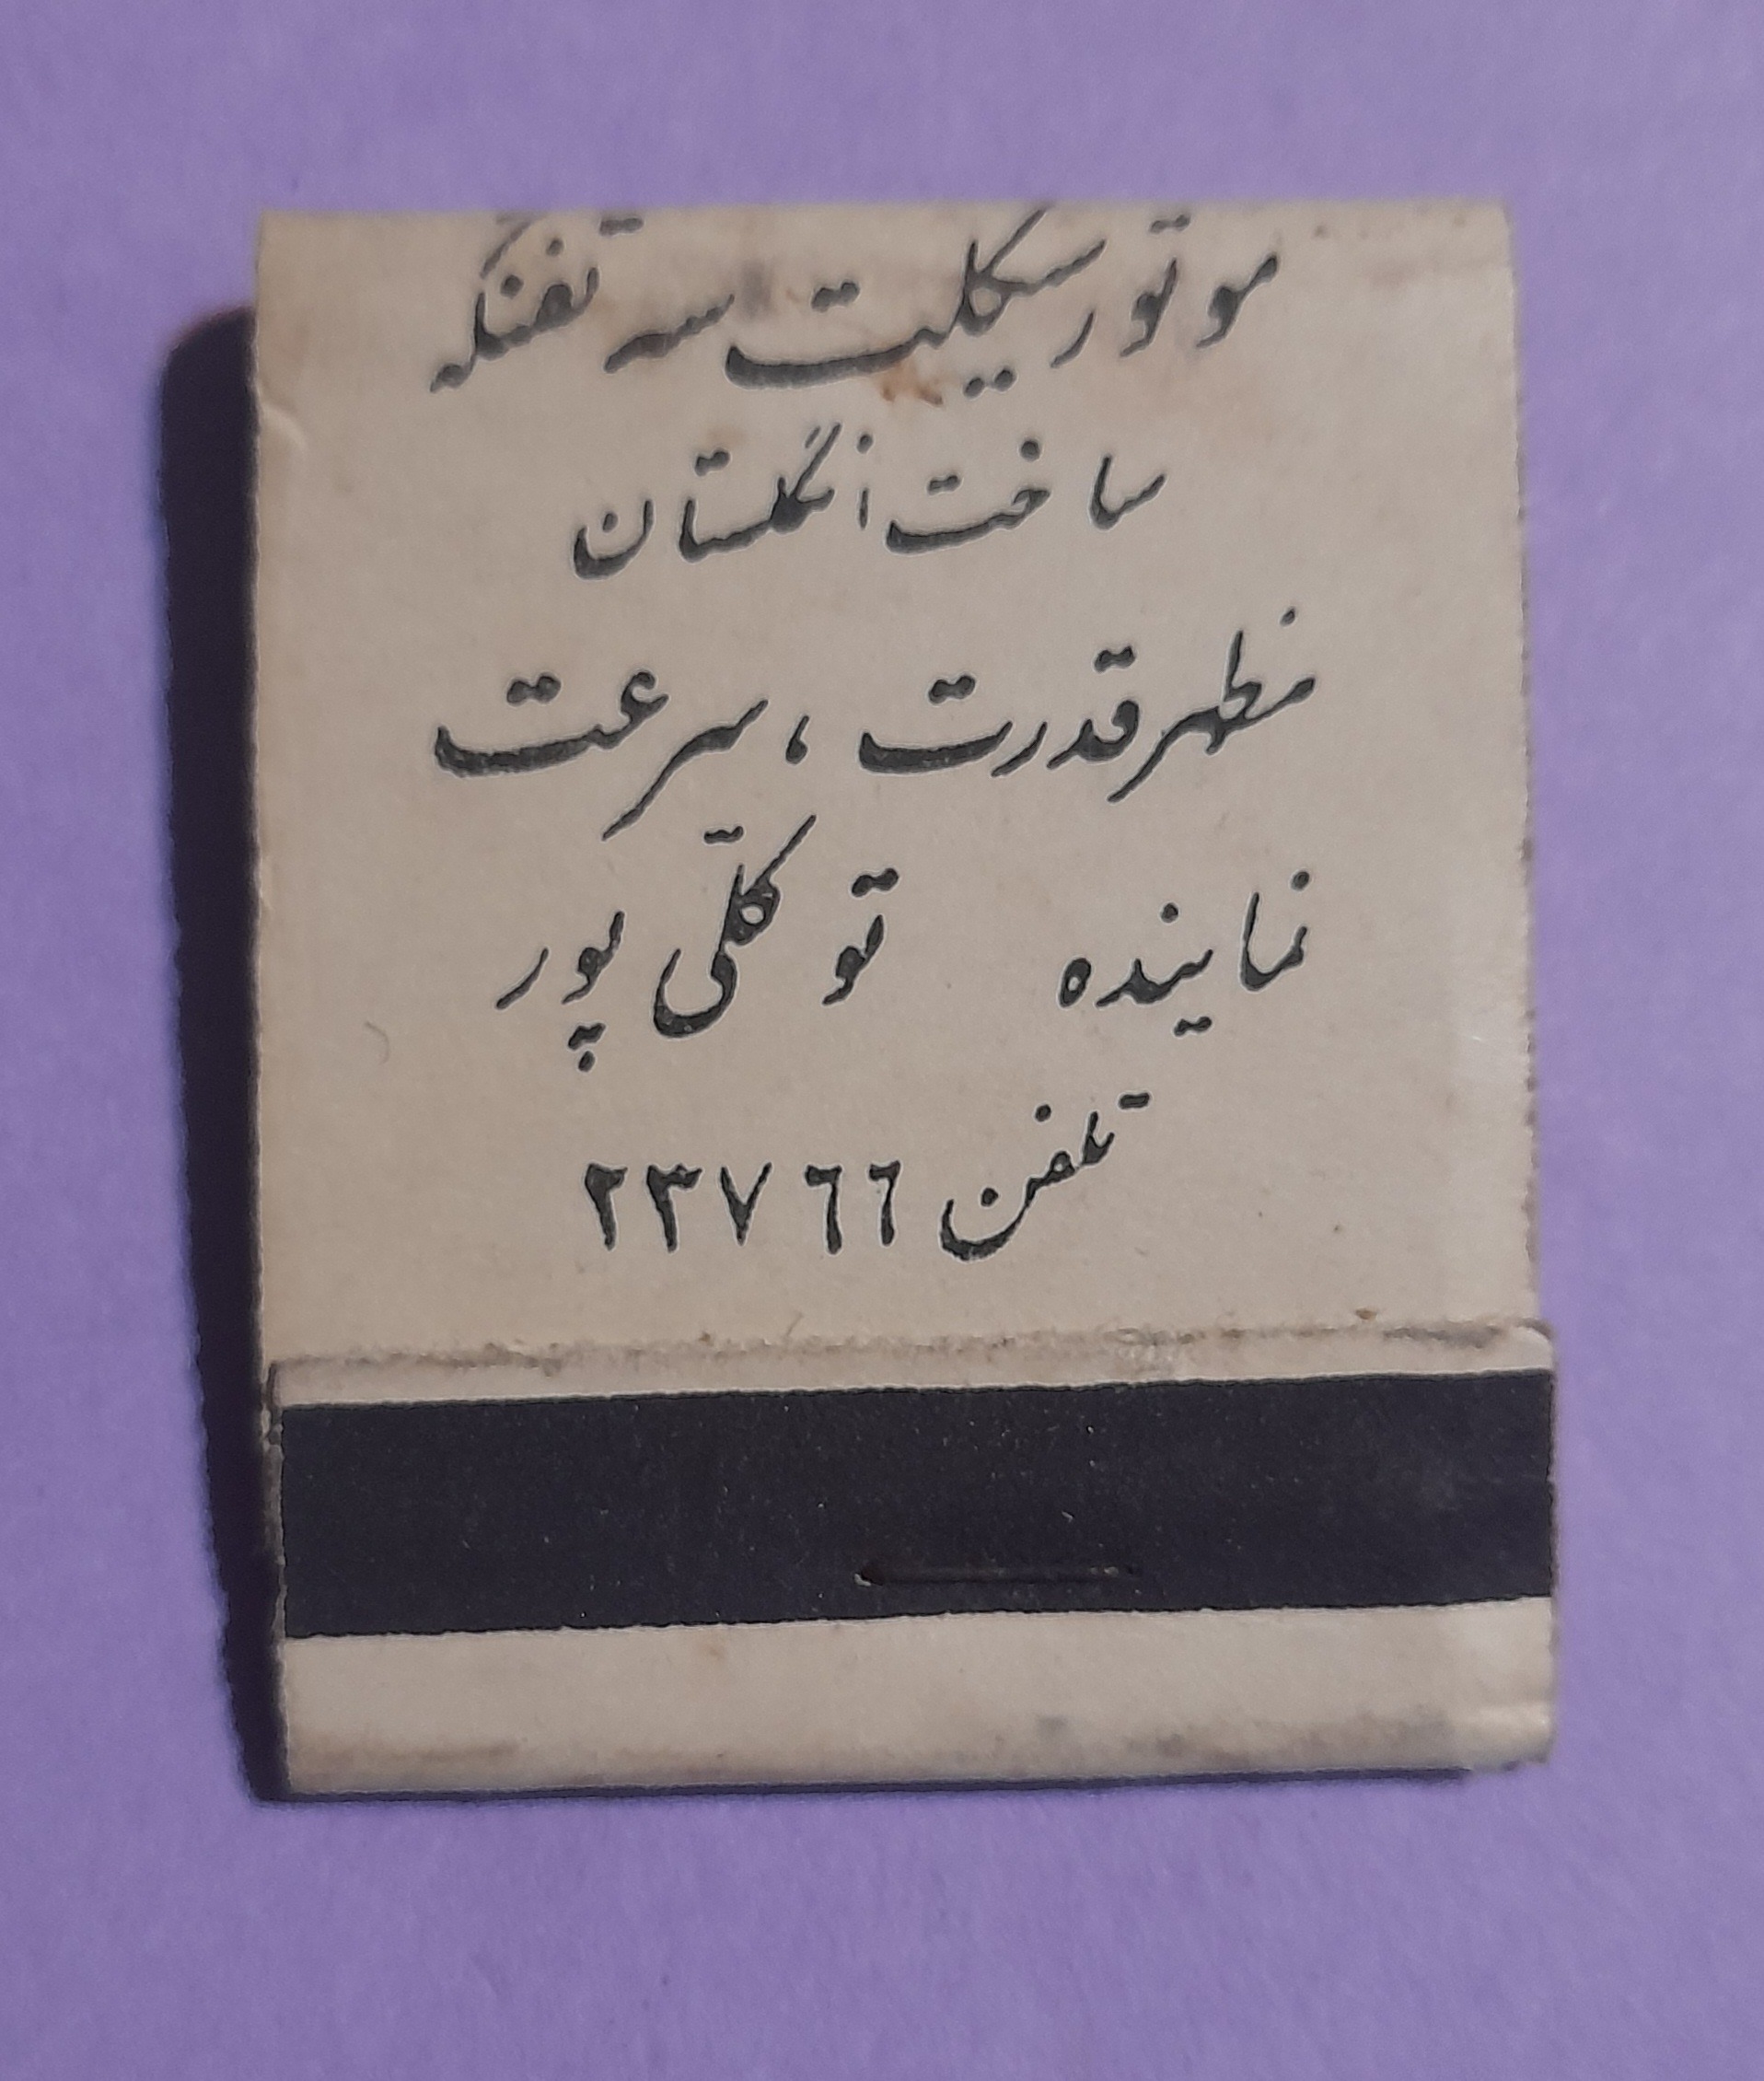 موتورسیکلت سه تفنگه
ساخت انگلستان
مظهر قدرت ، سرعت
نماینده توکلّی پور
تلفن ۲۳۷٦٦